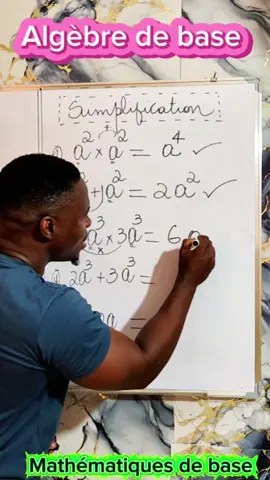 Algèbre de base
Sumplification
a² × a² = a⁴ ✓
+ 1a² = 2a² ✓
a³ × 3a³ = 6a
2a³ + 3a³ =
a =
Mathématiques de base